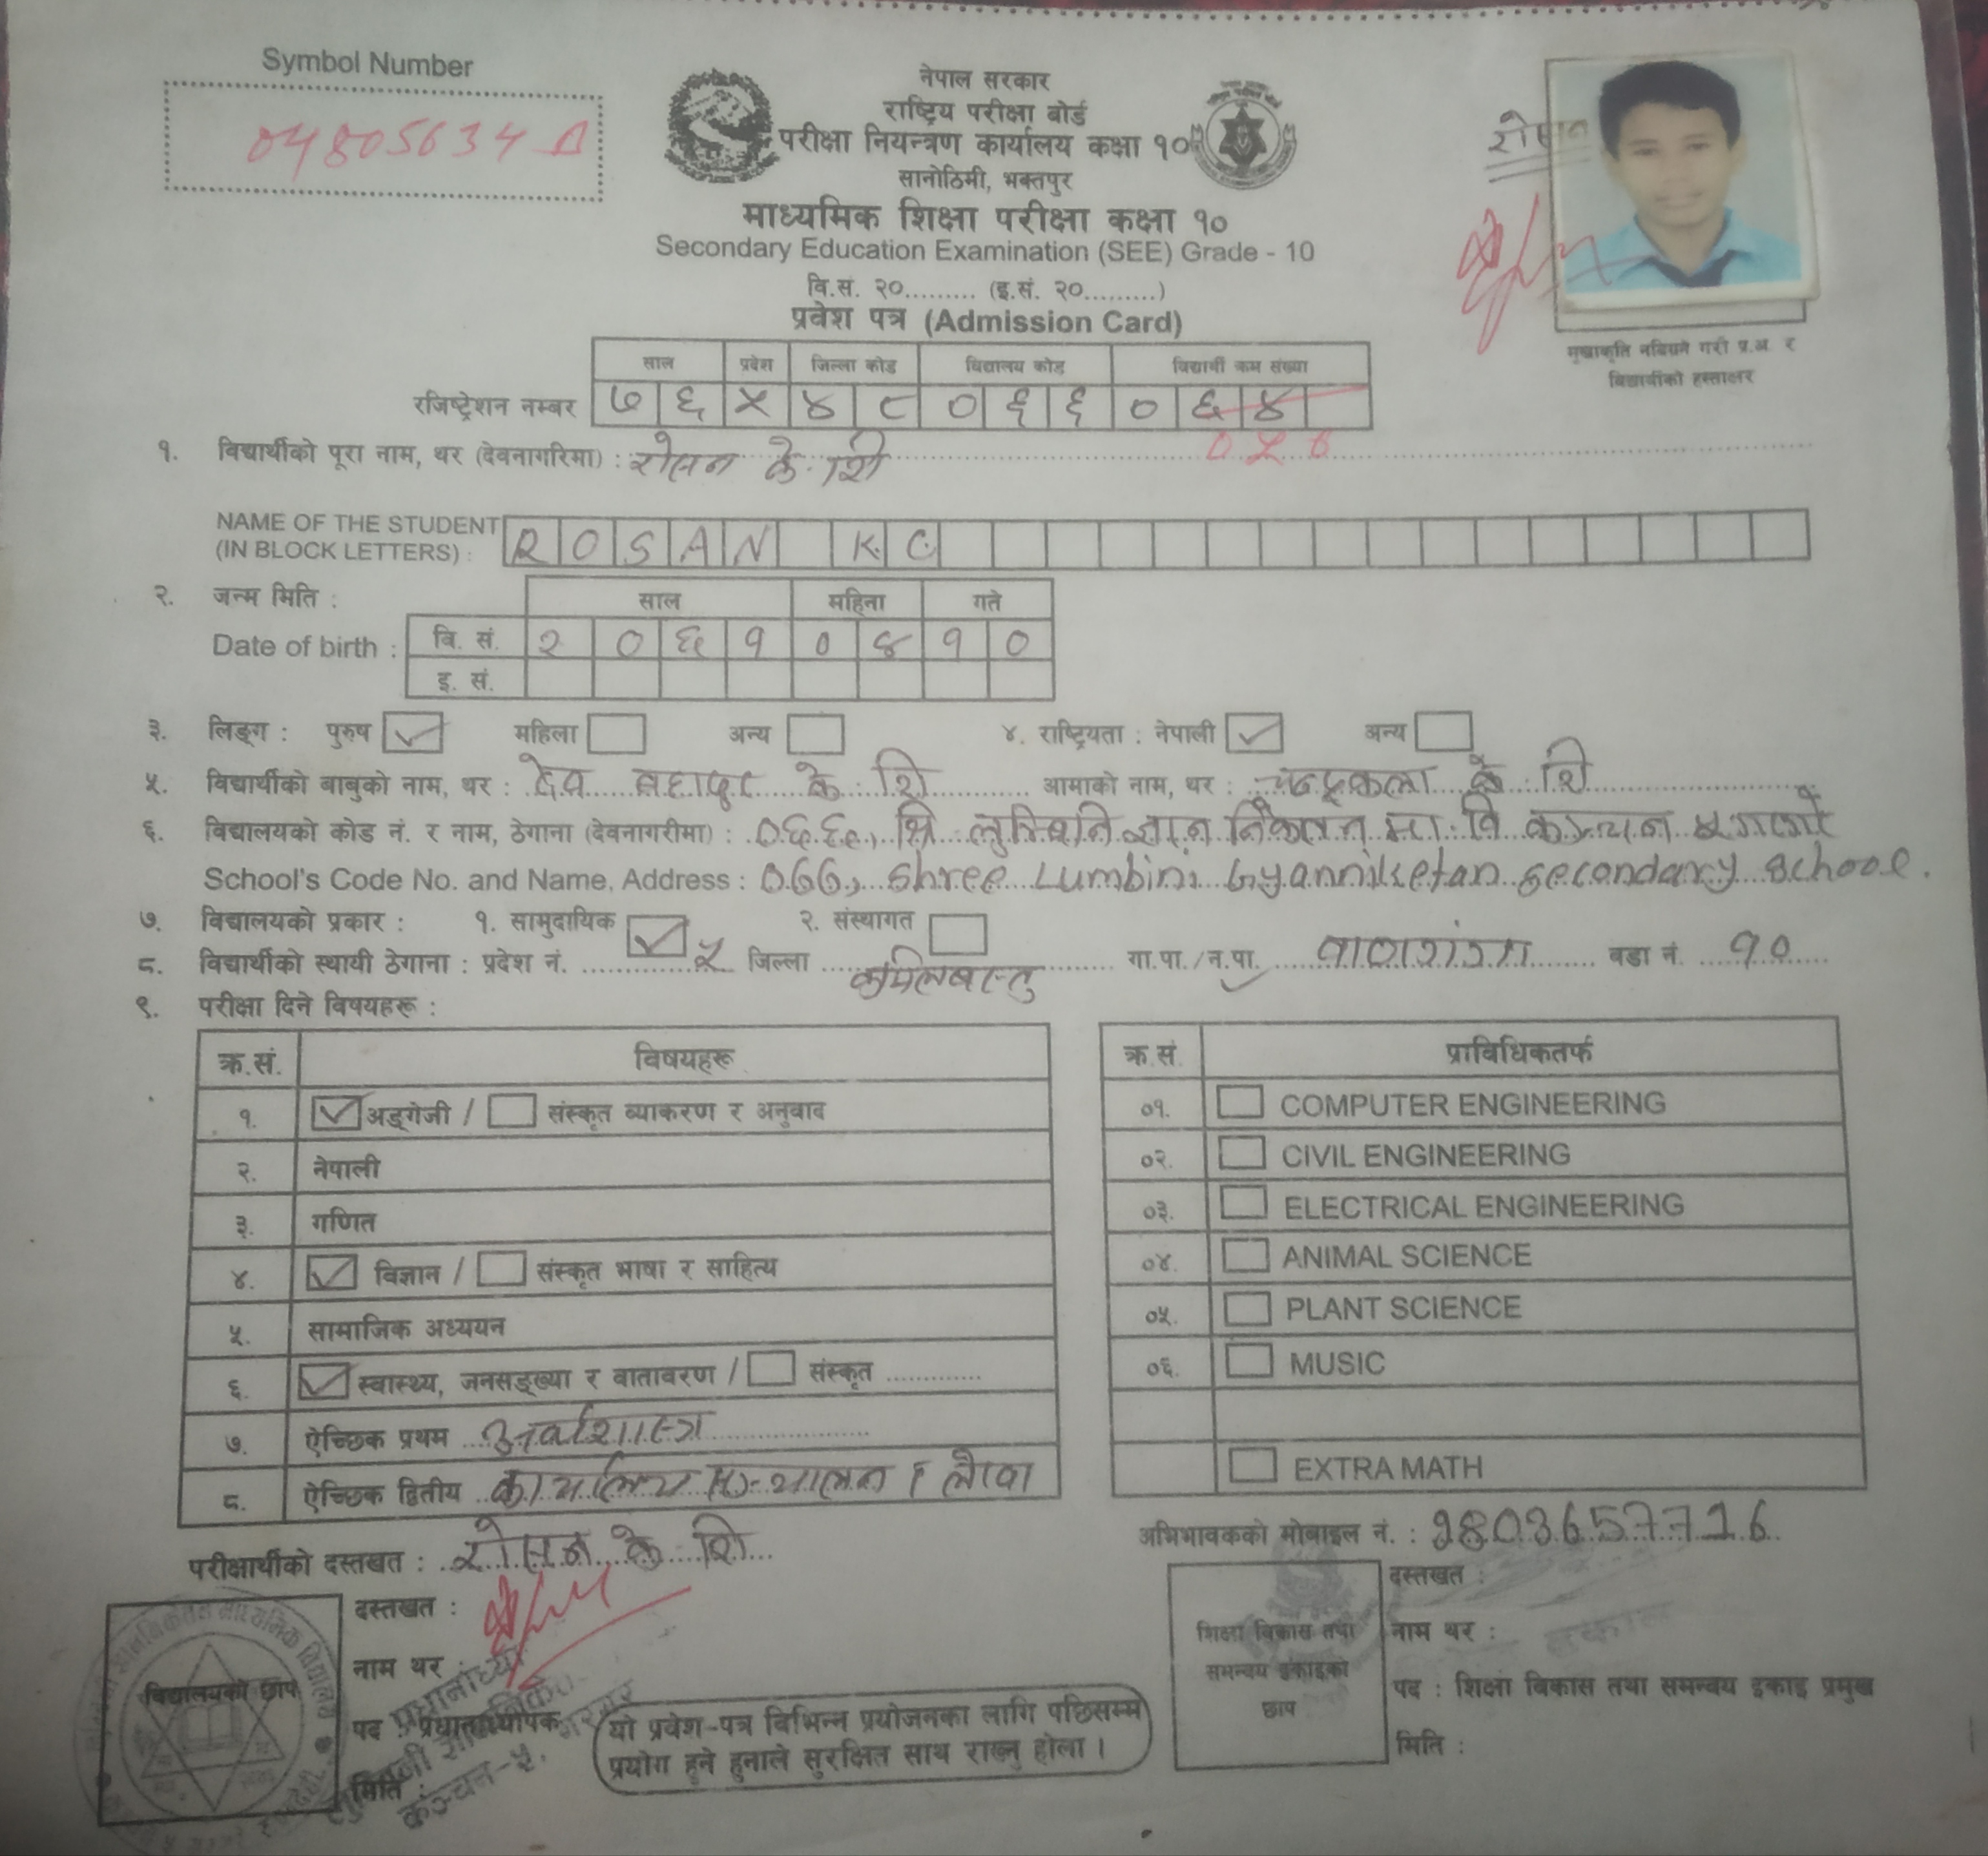 Symbol Number
04805634
नेपाल सरकार
राष्ट्रिय परीक्षा बोर्ड
परीक्षा नियन्त्रण कार्यालय कक्षा १०
सानोठिमी, भक्तपुर
माध्यमिक शिक्षा परीक्षा कक्षा १०
Secondary Education Examination (SEE) Grade - 10
वि.सं. २०......... (इ.सं. २०.........)
प्रवेश पत्र (Admission Card)
रोसन
मुखाकृति नबिग्रने गरी प्र.अ. र
विद्यार्थीको हस्ताक्षर
साल प्रदेश जिल्ला कोड विद्यालय कोड विद्यार्थी क्रम संख्या
रजिष्ट्रेशन नम्बर ७ ६ ५ ४ ८ ० ६ ६ ० ६ ४
१. विद्यार्थीको पूरा नाम, थर (देवनागरिमा) : रोसन के. शि
NAME OF THE STUDENT
(IN BLOCK LETTERS) : ROSAN K.C.
२. जन्म मिति : साल महिना गते
Date of birth : वि. सं. २ ० ६ १ ० ४ १ ०
इ. सं.
३. लिङ्ग : पुरुष महिला अन्य ४. राष्ट्रियता : नेपाली अन्य
५. विद्यार्थीको बाबुको नाम, थर : देव बहादुर के. शि आमाको नाम, थर : चन्द्रकला के. शि
६. विद्यालयको कोड नं. र नाम, ठेगाना (देवनागरीमा) : ०६६, श्री लुम्बिनी ज्ञान निकेतन मा. वि कञ्चन
School's Code No. and Name, Address : 066, Shree Lumbini Gyanniketan secondary school.
७. विद्यालयको प्रकार : १. सामुदायिक २. संस्थागत
८. विद्यार्थीको स्थायी ठेगाना : प्रदेश नं. ५ जिल्ला कपिलबस्तु गा.पा./न.पा. वाणगंगा वडा नं. १०
९. परीक्षा दिने विषयहरू :
क्र.सं. विषयहरू
१. अङ्ग्रेजी / संस्कृत व्याकरण र अनुवाद
२. नेपाली
३. गणित
४. विज्ञान / संस्कृत भाषा र साहित्य
५. सामाजिक अध्ययन
६. स्वास्थ्य, जनसङ्ख्या र वातावरण / संस्कृत ..............
७. ऐच्छिक प्रथम अर्थशास्त्र
८. ऐच्छिक द्वितीय कार्यालय सञ्चालन र लेखा
क्र.सं. प्राविधिकतर्फ
०१. COMPUTER ENGINEERING
०२. CIVIL ENGINEERING
०३. ELECTRICAL ENGINEERING
०४. ANIMAL SCIENCE
०५. PLANT SCIENCE
०६. MUSIC
EXTRA MATH
परीक्षार्थीको दस्तखत : रोसन के. शि
अभिभावकको मोबाइल नं. : 9803657726
दस्तखत :
नाम थर :
पद : प्रधानाध्यापक
मिति :
विद्यालयको छाप
यो प्रवेश-पत्र विभिन्न प्रयोजनका लागि पछिसम्म
प्रयोग हुने हुनाले सुरक्षित साथ राख्नु होला ।
शिक्षा विकास तथा
समन्वय इकाइको
छाप
दस्तखत :
नाम थर :
पद : शिक्षा विकास तथा समन्वय इकाइ प्रमुख
मिति :